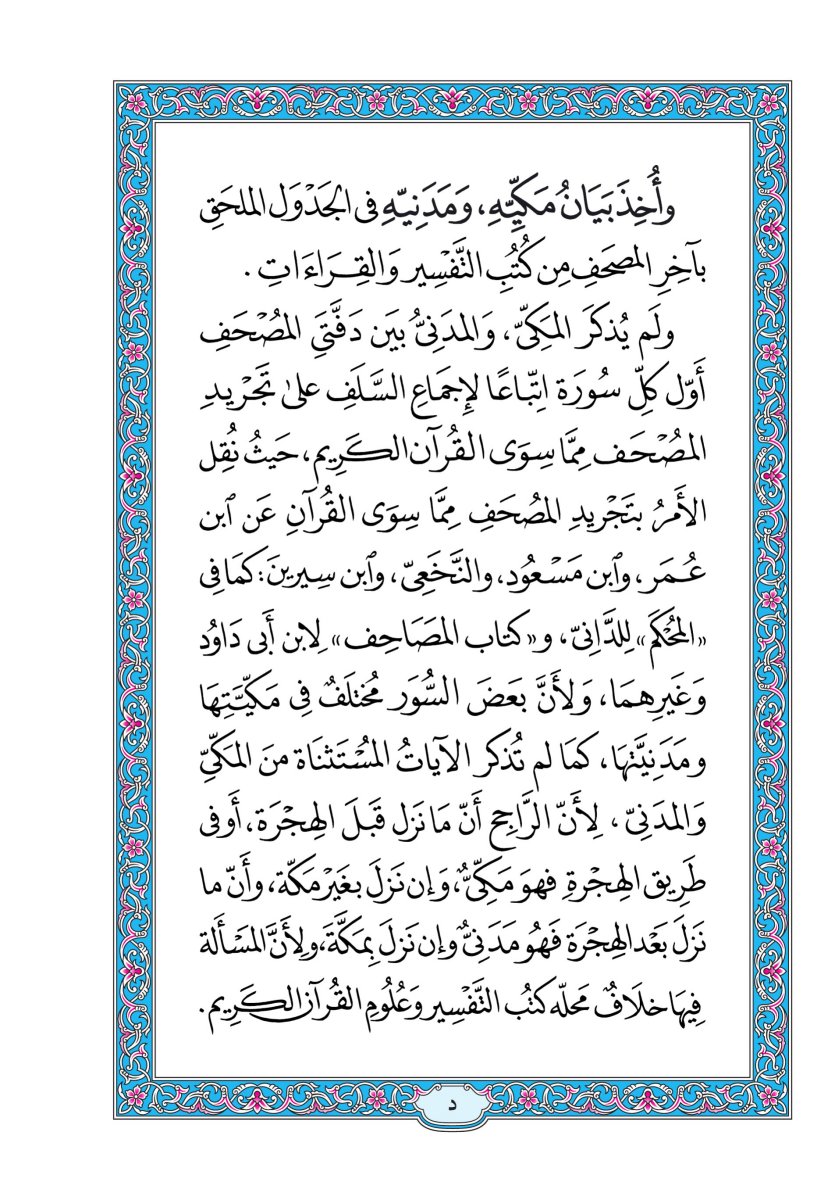 وأُخِذَ بَيَانُ مَكِّيِّهِ، وَمَدَنِيِّهِ فى الجَدْوَل الملحَقِ
بآخِرِ المصحَفِ مِن كُتُبِ التَّفْسِير وَالقِرَاءَاتِ .
ولَم يُذكَرَ المَكِّىّ، وَالمدَنِىُّ بَيَن دَفَّتَىِ المُصْحَفِ
أَوّل كلِّ سُورَة اتِّبَاعًا لإجمَاعِ السَّلَفِ علىٰ تَجْرِيدِ
المصْحَف مِمَّا سِوَى القُرآن الكَرِيم، حَيثُ نُقِل
الأَمرُ بتَجْرِيدِ المصْحَفِ مِمَّا سِوَى القُرآنِ عَن ٱبن
عُمَر، وٱبن مَسْعُود، والنَّخَعِىّ، وٱبن سِيرينَ: كمَا فِى
«المحْكَم» لِلدَّانِىّ، و«كتاب المصَاحِف» لِابن أَبى دَاوُد
وَغَيرِهمَا، وَلأَنَّ بَعضَ السُّوَر مُختلَفٌ فِى مَكيَّتِهَا
ومَدَنِيَّتهَا، كمَا لم تُذكر الآيَاتُ المُسْتَثنَاة منَ المَكِّىِّ
وَالمدَنِىّ، لِأَنّ الرَّاجِح أَنّ مَا نَزل قَبلَ الهِجْرَة، أَو فى
طَرِيق الهِجْرةِ فهوَ مَكِّىٌّ، وَإن نَزلَ بغَيْر مَكّة، وأَنّ ما
نَزلَ بَعْد الهِجْرَة فَهُو مَدَنىٌّ وإن نَزلَ بِمَكَّةَ، ولِأَنَّ المَسْأَلة
فِيهَا خلَافٌ مَحلّه كتُبُ التَّفْسِير وَعُلُومِ القُرآن الكَرِيم.
د